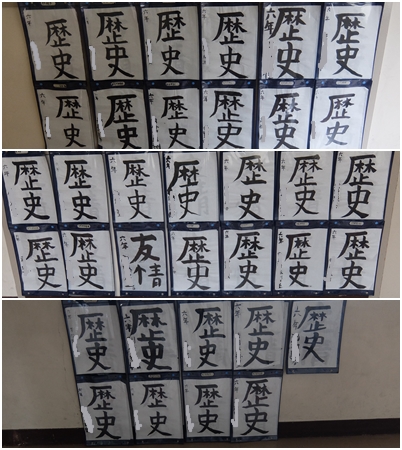 歴史 歴史 歴史 歴史 六年 歴史 歴史
歴史 歴史 歴史 歴史 歴史 歴史
歴史 歴史 歴史 歴史 歴史 歴史 歴史
歴史 歴史 友情 歴史 歴史 歴史 歴史
歴史 歴史 歴史 歴史 歴史
歴史 歴史 歴史 歴史